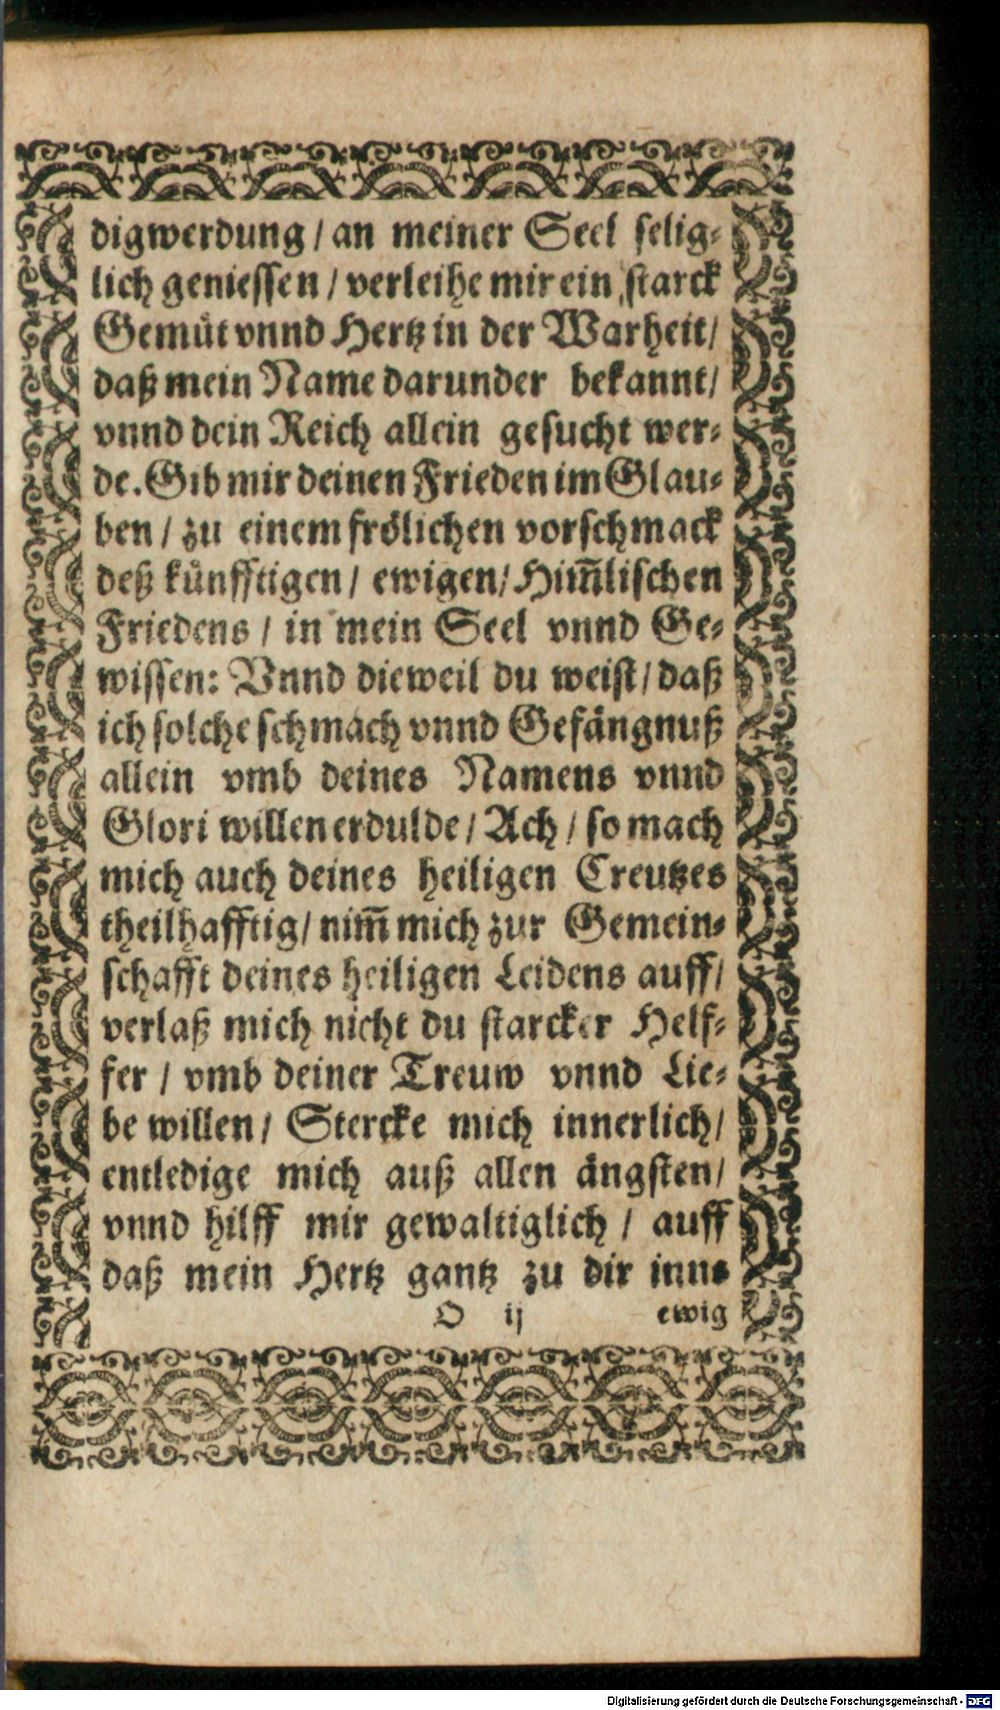 digwerdung / an meiner Seel selig⸗
lich geniessen / verleihe mir ein starck
Gemüt vnnd Hertz in der Warheit /
daß mein Name darunder bekannt /
vnnd dein Reich allein gesucht wer⸗
de. Gib mir deinen Frieden im Glau⸗
ben / zu einem frölichen vorschmack
deß künfftigen / ewigen / Him̃lischen
Friedens / in mein Seel vnnd Ge⸗
wissen: Vnnd dieweil du weist / daß
ich solche schmach vnnd Gefängnuß
allein vmb deines Namens vnnd
Glori willen erdulde / Ach / so mach
mich auch deines heiligen Creutzes
theilhafftig / nim̃ mich zur Gemein⸗
schafft deines heiligen Leidens auff /
verlaß mich nicht du starcker Helf⸗
fer / vmb deiner Treuw vnnd Lie⸗
be willen / Stercke mich innerlich /
entledige mich auß allen ängsten /
vnnd hilff mir gewaltiglich / auff
daß mein Hertz gantz zu dir inn⸗
O ij ewig
Digitalisierung gefördert durch die Deutsche Forschungsgemeinschaft - DFG